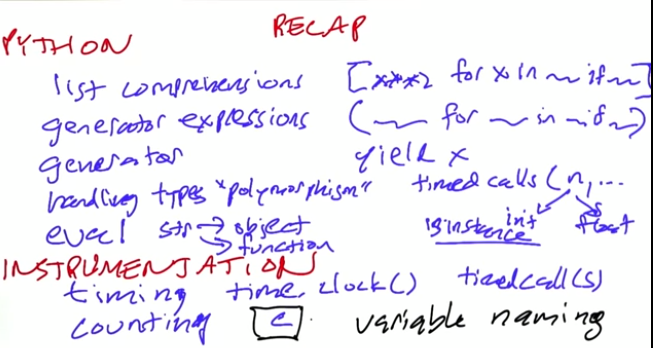 RECAP
PYTHON
list comprehensions [x**2 for x in ~ if ~]
generator expressions (~ for ~ in ~ if ~)
generator yield x
handling types "polymorphism" timedcalls(n, ...
int float
eval str → object isinstance
→ function
INSTRUMENTATION
timing time.clock() timedcall(s)
counting c variable naming